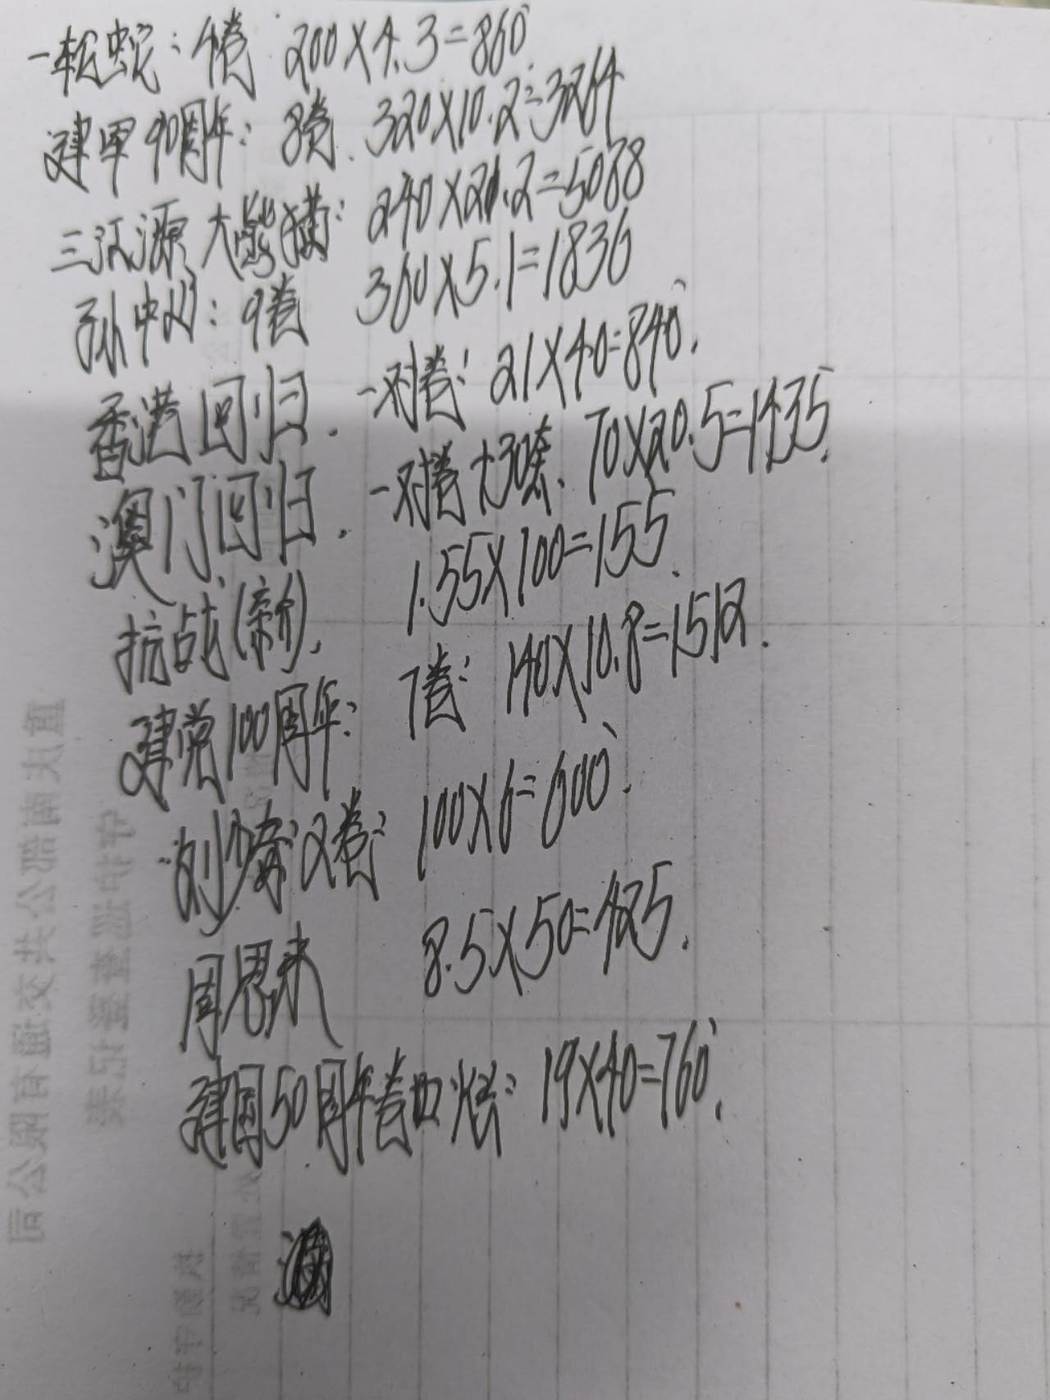 一轮蛇：4卷 200×4.3=860
建军90周年：8卷. 320×10.2=3264
三江源 大熊猫： 240×21.2=5088
孙中山：9卷 360×5.1=1836
香港回归. 一对卷：21×40=840.
澳门回归. 一对卷+30套. 70×20.5=1435.
抗战(新). 1.55×100=155.
建党100周年： 7卷：140×10.8=1512.
刘少奇：2卷： 100×6=600.
周恩来 8.5×50=425.
建国50周年卷 19×40=760.